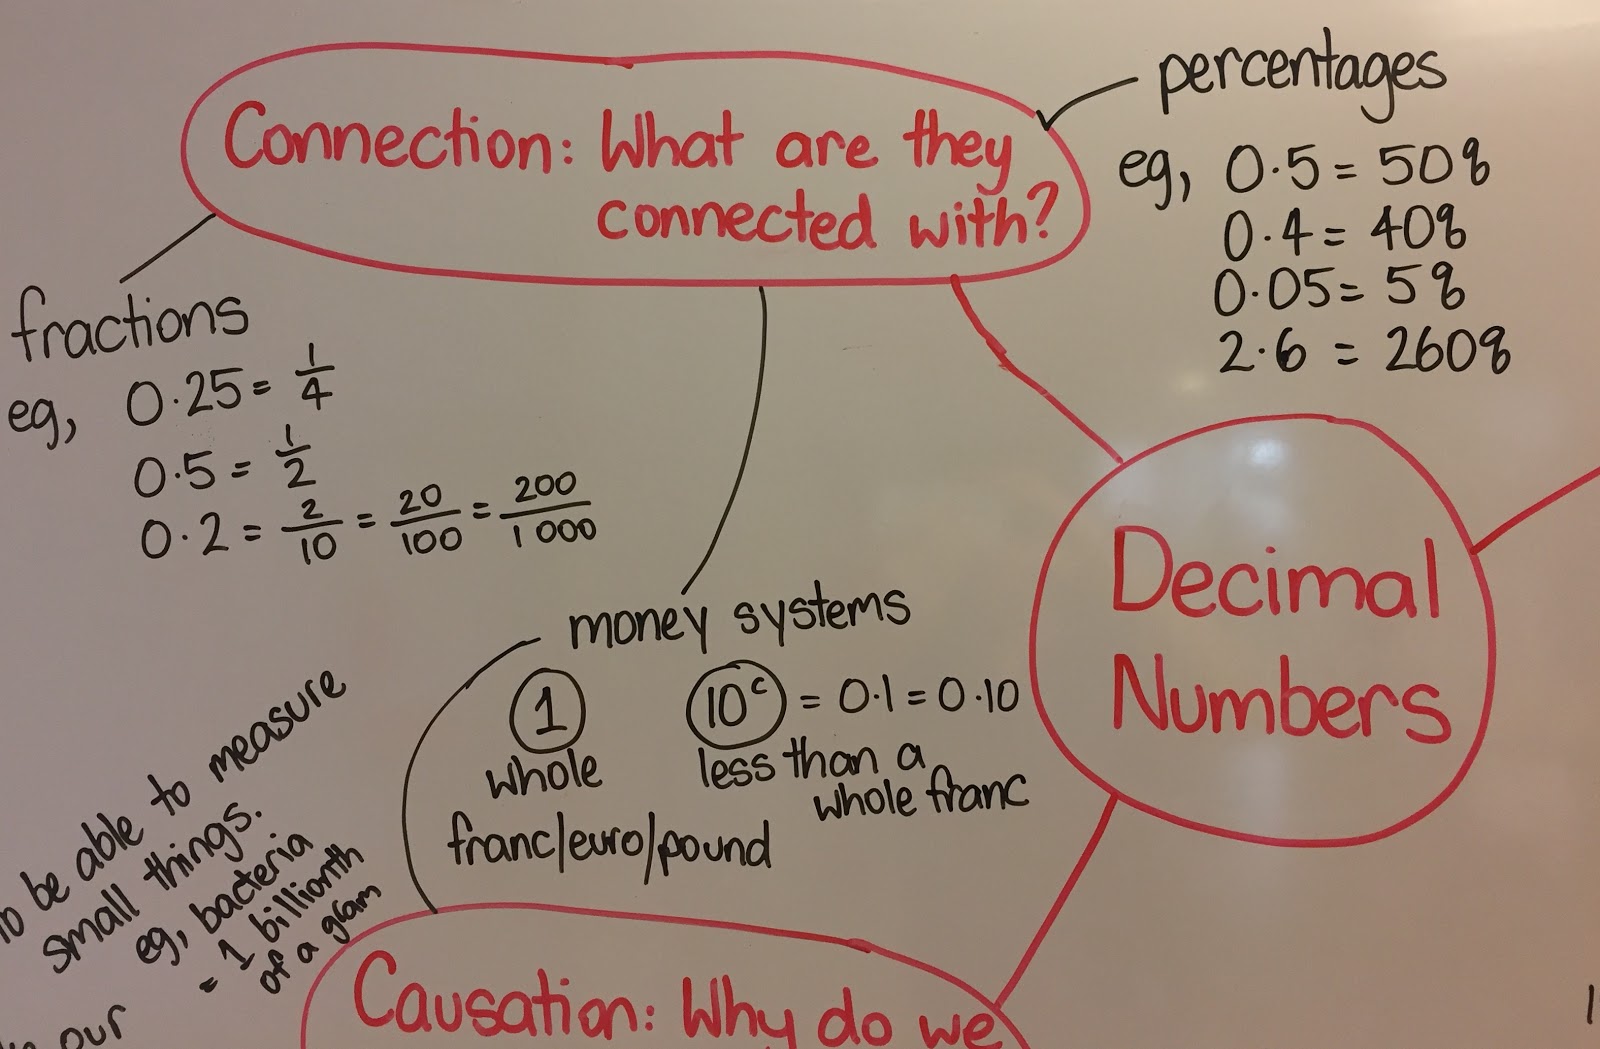 Connection: What are they
connected with?
percentages
eg, 0.5 = 50%
0.4 = 40%
0.05 = 5%
2.6 = 260%
fractions
eg, 0.25 = 1/4
0.5 = 1/2
0.2 = 2/10 = 20/100 = 200/1000
money systems
1
whole
franc/euro/pound
10c = 0.1 = 0.10
less than a
whole franc
Decimal
Numbers
to be able to measure
small things.
eg, bacteria
= 1 billionth
of a gram
our
Causation: Why do we